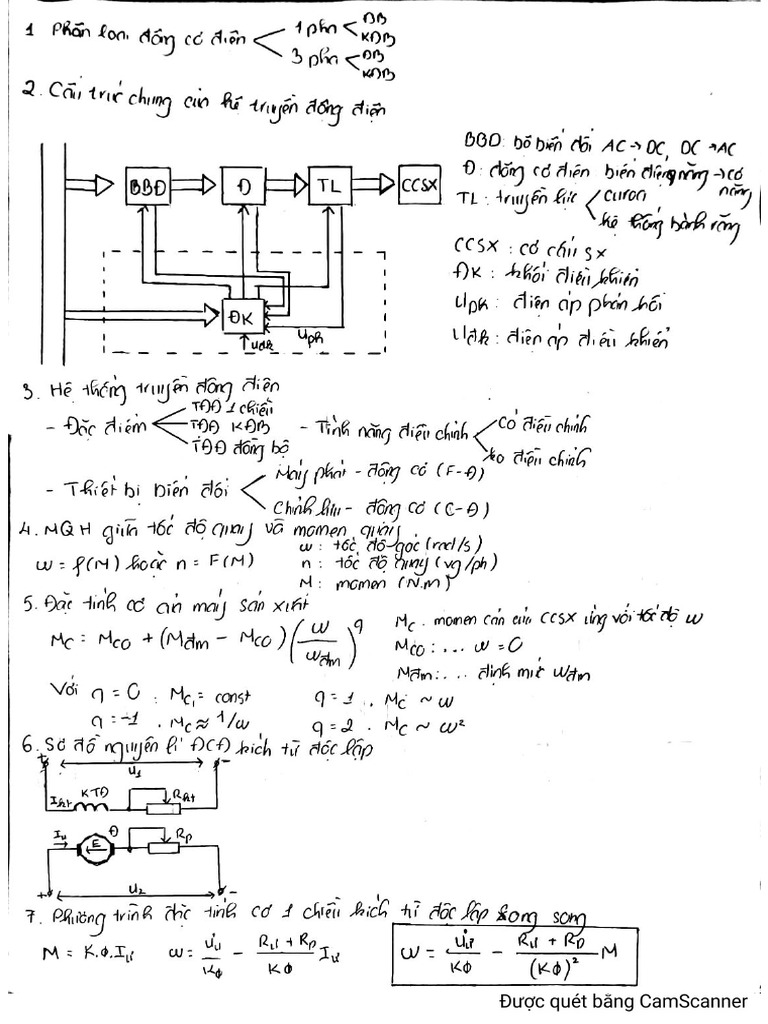 1 Phân loại động cơ điện
1 pha
ĐB
KĐB
3 pha
ĐB
KĐB
2. Cấu trúc chung của hệ truyền động điện
BBĐ
Đ
TL
CCSX
ĐK
Uđk
Uph
BBĐ: bộ biến đổi AC → DC, DC → AC
Đ: động cơ điện biến điện năng → cơ năng
TL: truyền lực
curoa
hệ thống bánh răng
CCSX: cơ cấu sx
ĐK: khối điều khiển
Uph: điện áp phản hồi
Uđk: điện áp điều khiển
3. Hệ thống truyền động điện
- Đặc điểm
TĐĐ 1 chiều
TĐĐ KĐB
TĐĐ đồng bộ
- Tính năng điều chỉnh
Có điều chỉnh
ko điều chỉnh
- Thiết bị biến đổi
Máy phát - động cơ (F-Đ)
Chỉnh lưu - động cơ (C-Đ)
4. MQH giữa tốc độ quay và momen quay
ω = f(M) hoặc n = F(M)
ω: tốc độ góc (rad/s)
n: tốc độ quay (vg/ph)
M: momen (N.m)
5. Đặc tính cơ của máy sản xuất
Mc = Mco + (Mđm - Mco)(ω/ωđm)^q
Mc: momen cản của CCSX ứng với tốc độ ω
Mco: ... ω = 0
Mđm: ... định mức ωđm
Với q = 0 : Mc = const
q = 1 . Mc ~ ω
q = -1 . Mc ≈ 1/ω
q = 2 . Mc ~ ω²
6. Sơ đồ nguyên lí ĐCĐ kích từ độc lập
+ U1 -
Ikt
KTĐ
Rkt
Iư
E
Đ
Rp
+ U2 -
7. Phương trình đặc tính cơ 1 chiều kích từ độc lập song song
M = K.ϕ.Iư
ω = Uư/Kϕ - (Rư + Rp)/Kϕ Iư
ω = Uư/Kϕ - (Rư + Rp)/(Kϕ)² M
Được quét bằng CamScanner